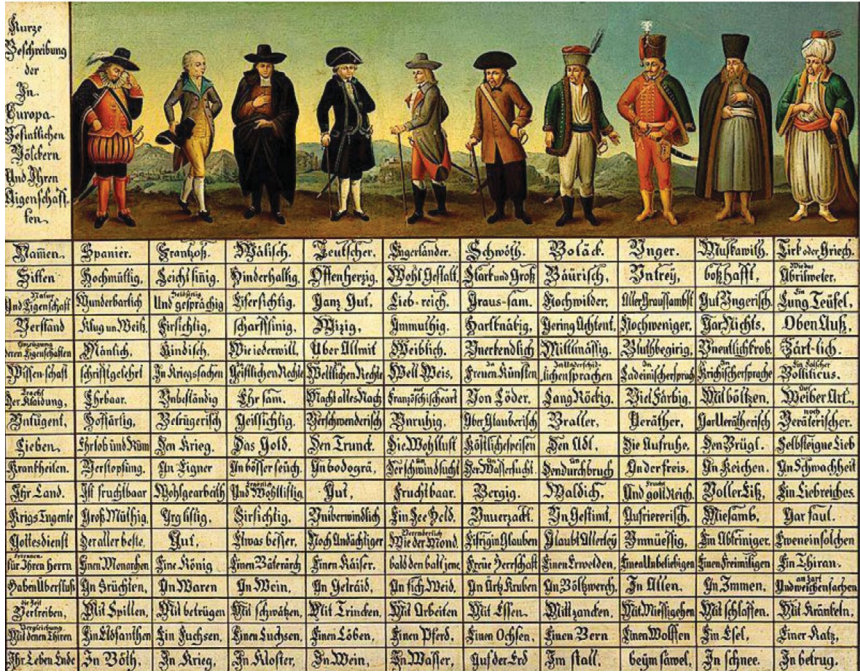 Kurze
Beschreibung
der
In
Europa
Befintlichen
Völckern
Und Ihren
Aigenschaff-
ten.
Namen. Spanier. Frantzoß. Wälisch. Teutscher. Engerländer. Schwöth. Boläck. Unger. Muskawith. Tirk oder Griech.
Sitten Hochmüttig, Leichtsinig, Hinderhaltig, Offenherzig, Wohl Gestalt, Starck und Groß Bäurisch, Untrey, boßhafft, Abrilweter,
Natur Und Eigenschaft Wunderbarlich Und gesprächig Eifersichtig, Ganz Gut, Lieb-reich, Graus-sam, Nochwilder, Aller Graussambst Gut Ungerisch, Ein Lung Teüfel,
Verstand Klug un Weiß, Firsichtig, scharffsinig, Wizig, Ammuthig, Hartknäbig, Gering Achtent, Nochweniger, Gar Nichts, Oben Auß,
Mänlich, Kindisch, Wie iederwill, Über Allmit Weiblich, Unerkendlich Mittlmässig, Bluthbegirig, Unentlichkrob, Zärt-lich.
Wissenschaft schrifftgelehrt In Kriegssachen Geistlichen Rechte Weltlichen Rechte Welt Weis, Freuen Künsten lichensprachen Ladeinischersprach Krichischersprache Bollitticus.
Der Klaidung, Ehrbaar, Unbeständig Ehrsam, Macht alles Nach Französchischeart Von Löder, Lang Röckig, Viel Färbig, Mit böltzen, Weiber Art,
Untugent, Hoffärtig, Betrugerisch Geillsichtig, Verschwenderisch Unruhig, Aber Glauberisch Braller, Veräther, Garverätherisch noch Verätherischer
Lieben, Ehrlob und Rüm Den Krieg, Das Gold, Den Trunck, Die Wohllust Köstlichespeisen Den Adl, Die Aufruhe, Den Brügl, Selbsteigne Lieb
Kranckheiten, Verstopfung, An Eigner An bösserseüch, An bodogrä, Der schwindsucht Der Wassersucht, Den durchbruch An der freis, An Keichen, An Schwachheit
Ihr Land. Ist fruchtbaar Wohlgearbeith Und Wohllistig Gut, Fruchtbaar, Bergig, Waldich, Und goltReich, Voller Eiß, Ein Liebreiches,
Krigs Tugente Groß Müthig, Arg listig, Firsichtig, Uniberwindlich Ein See Held, Unverzackt, Un Gestimt, Aufriererisch, Miesamb, Gar faul,
Gottesdienst Der aller beste, Gut, Etwas besser, Noch Andächtiger Wie der Mond, Eifrig in Glauben Glaubt Allerley Unmüessig, Ein Abtriniger, Eweneinsolchen
für Ihren Herrn Einen Monarchen Eine König Einen Batterärch Einen Käiser, bald den bald jene, Freüe Herrschaft Einen Erwelden, Einen Unbeliebigen Einen Freimiligen Ein Thiran,
Haben Überfluß In Früchten, An Waren In Wein, An Geträid, An sich Weid, An Ärtz Kruben An Böltzwerch, In Allen, In Immen, Und weichensachen
Die Zeit Vertreiben, Mit Spillen, Mit betrügen Mit schwätzen, Mit Trincken, Mit Arbeiten Mit Essen, Mit zancken, Mit Miessigehen Mit schlaffen, Mit Kränkeln,
Vergleichung Mit denen Thiren Ein Elofanthen Ein Fuchsen, Einen Luchsen, Einen Löben, Einen Pferd, Einen Ochsen, Einen Bern Einen Wolffen Ein Esel, Einer Katz,
Ihr Leben Ende In Böth, In Krieg, In Kloster, In Wein, In Wasser, Auf der Erd Im stall, beym säwel, In schnee, In betrug.